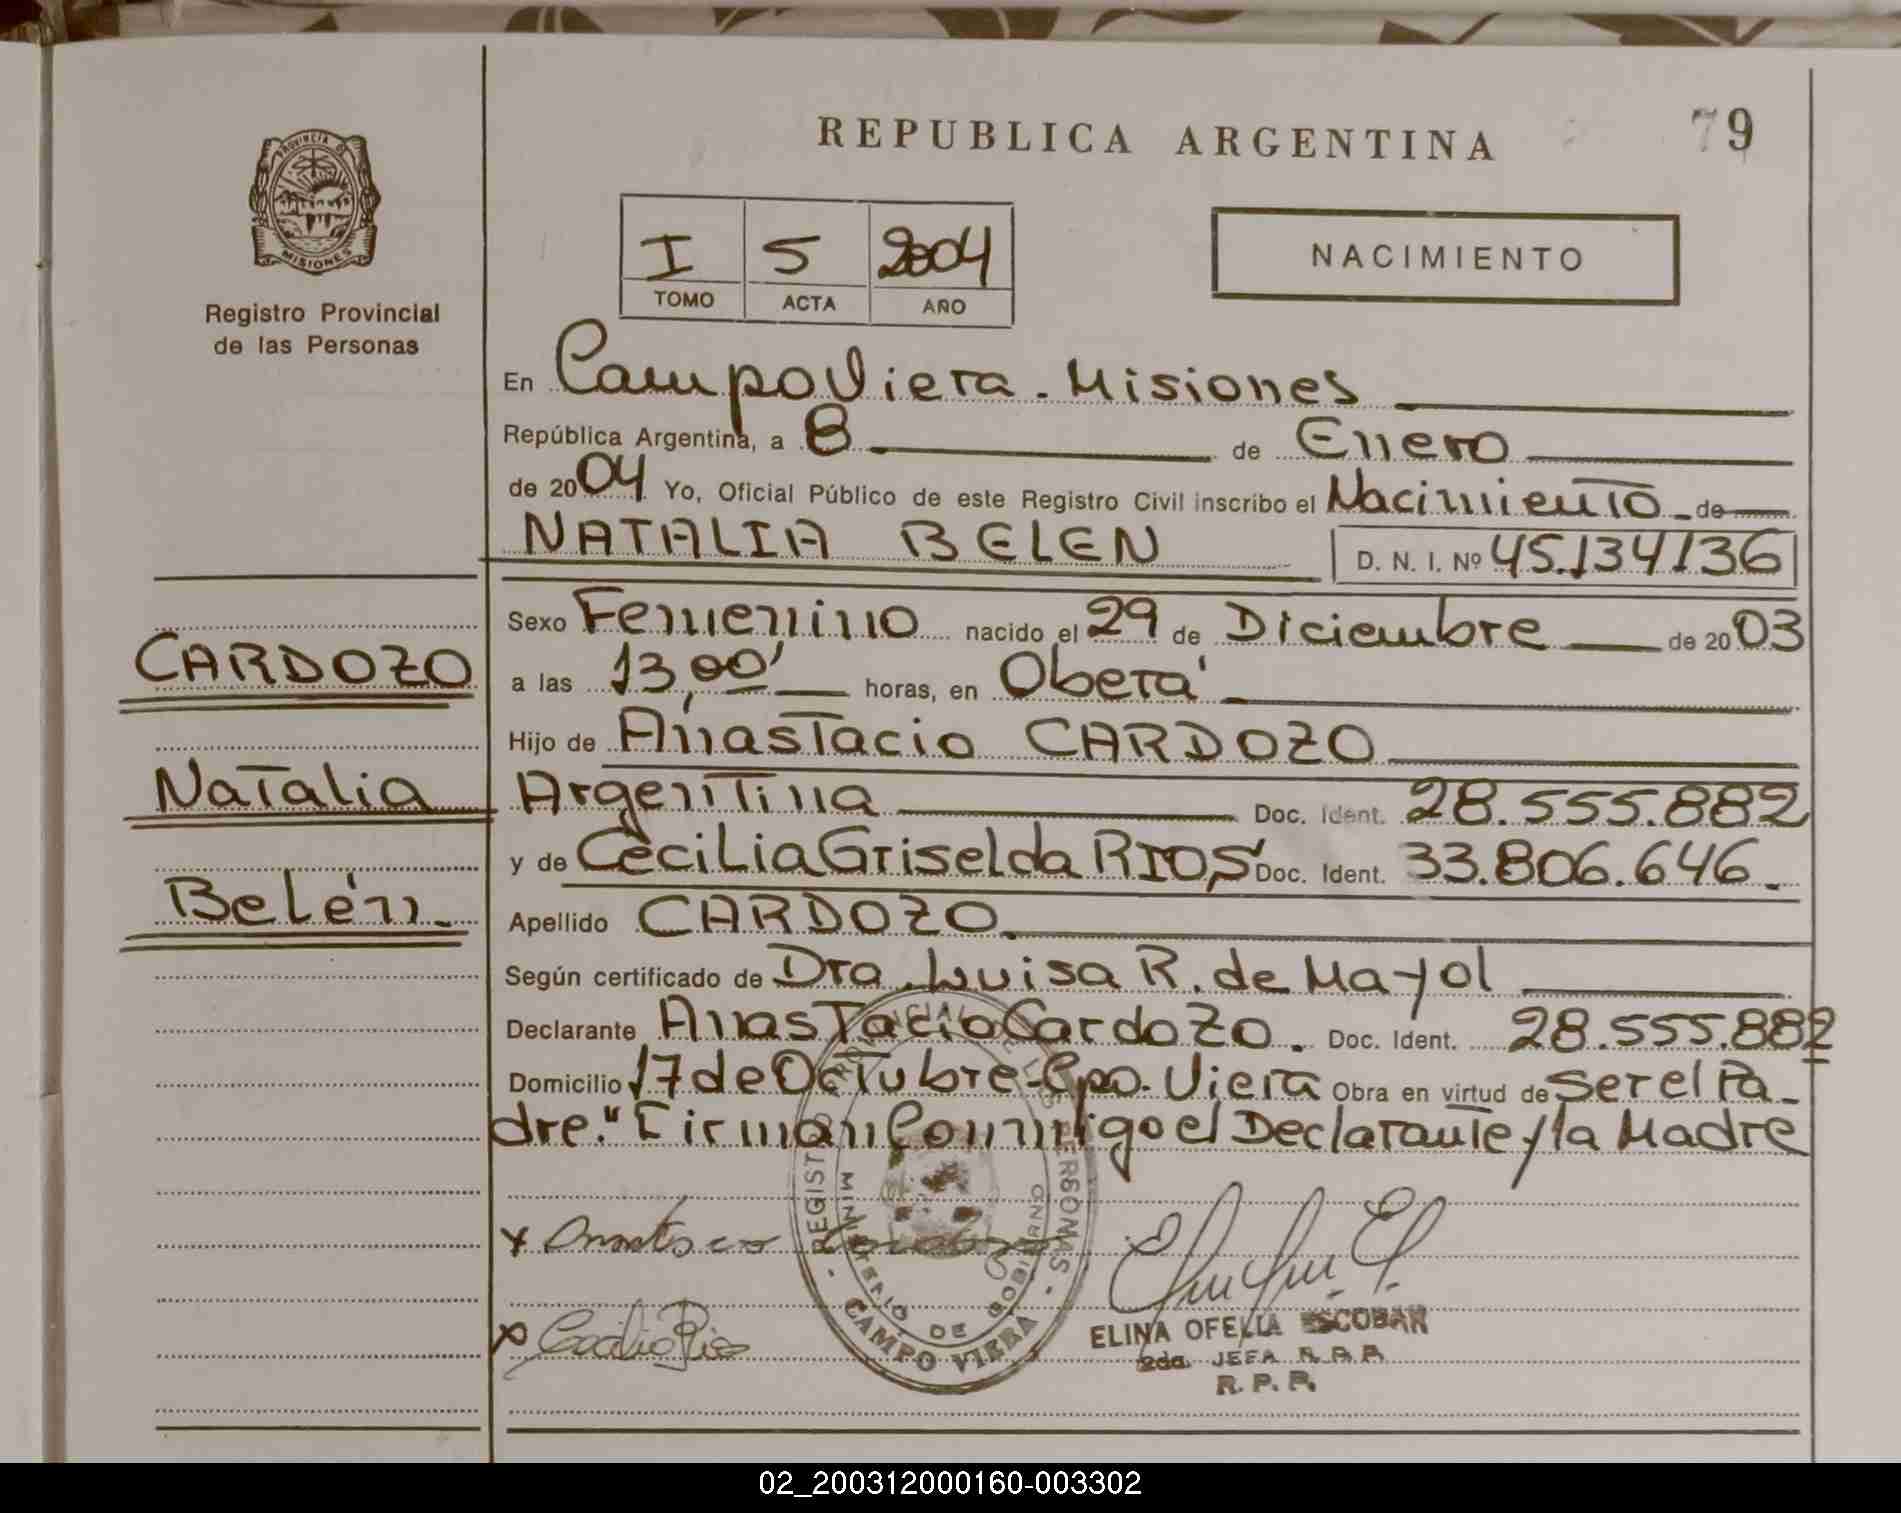 REPUBLICA ARGENTINA
79
PROVINCIA DE
MISIONES
Registro Provincial
de las Personas
I 5 2004
TOMO ACTA AÑO
NACIMIENTO
En Campo Viera - Misiones
República Argentina, a 8 de Enero
de 2004 Yo, Oficial Público de este Registro Civil inscribo el Nacimiento de
NATALIA BELEN D. N. I. Nº 45.134136
Sexo Femenino nacido el 29 de Diciembre de 2003
CARDOZO
a las 13,00' horas, en Oberá
Hijo de Anastacio CARDOZO
Natalia
Argentina Doc. Ident. 28.555.882
y de Cecilia Griselda RIOS Doc. Ident. 33.806.646.
Belén
Apellido CARDOZO
Según certificado de Dra. Luisa R. de Mayol
Declarante Anastacio Cardozo. Doc. Ident. 28.555.882
Domicilio 17 de Octubre - Cpo. Viera Obra en virtud de ser el Pa-
dre." Firman Conmigo el Declarante y la Madre
REGISTRO PROVINCIAL DE LAS PERSONAS
MINISTERIO DE GOBIERNO
CAMPO VIERA
x
x Cecilia Rios
ELINA OFELIA ESCOBAR
2da. JEFA
R. P. P.
02_200312000160-003302